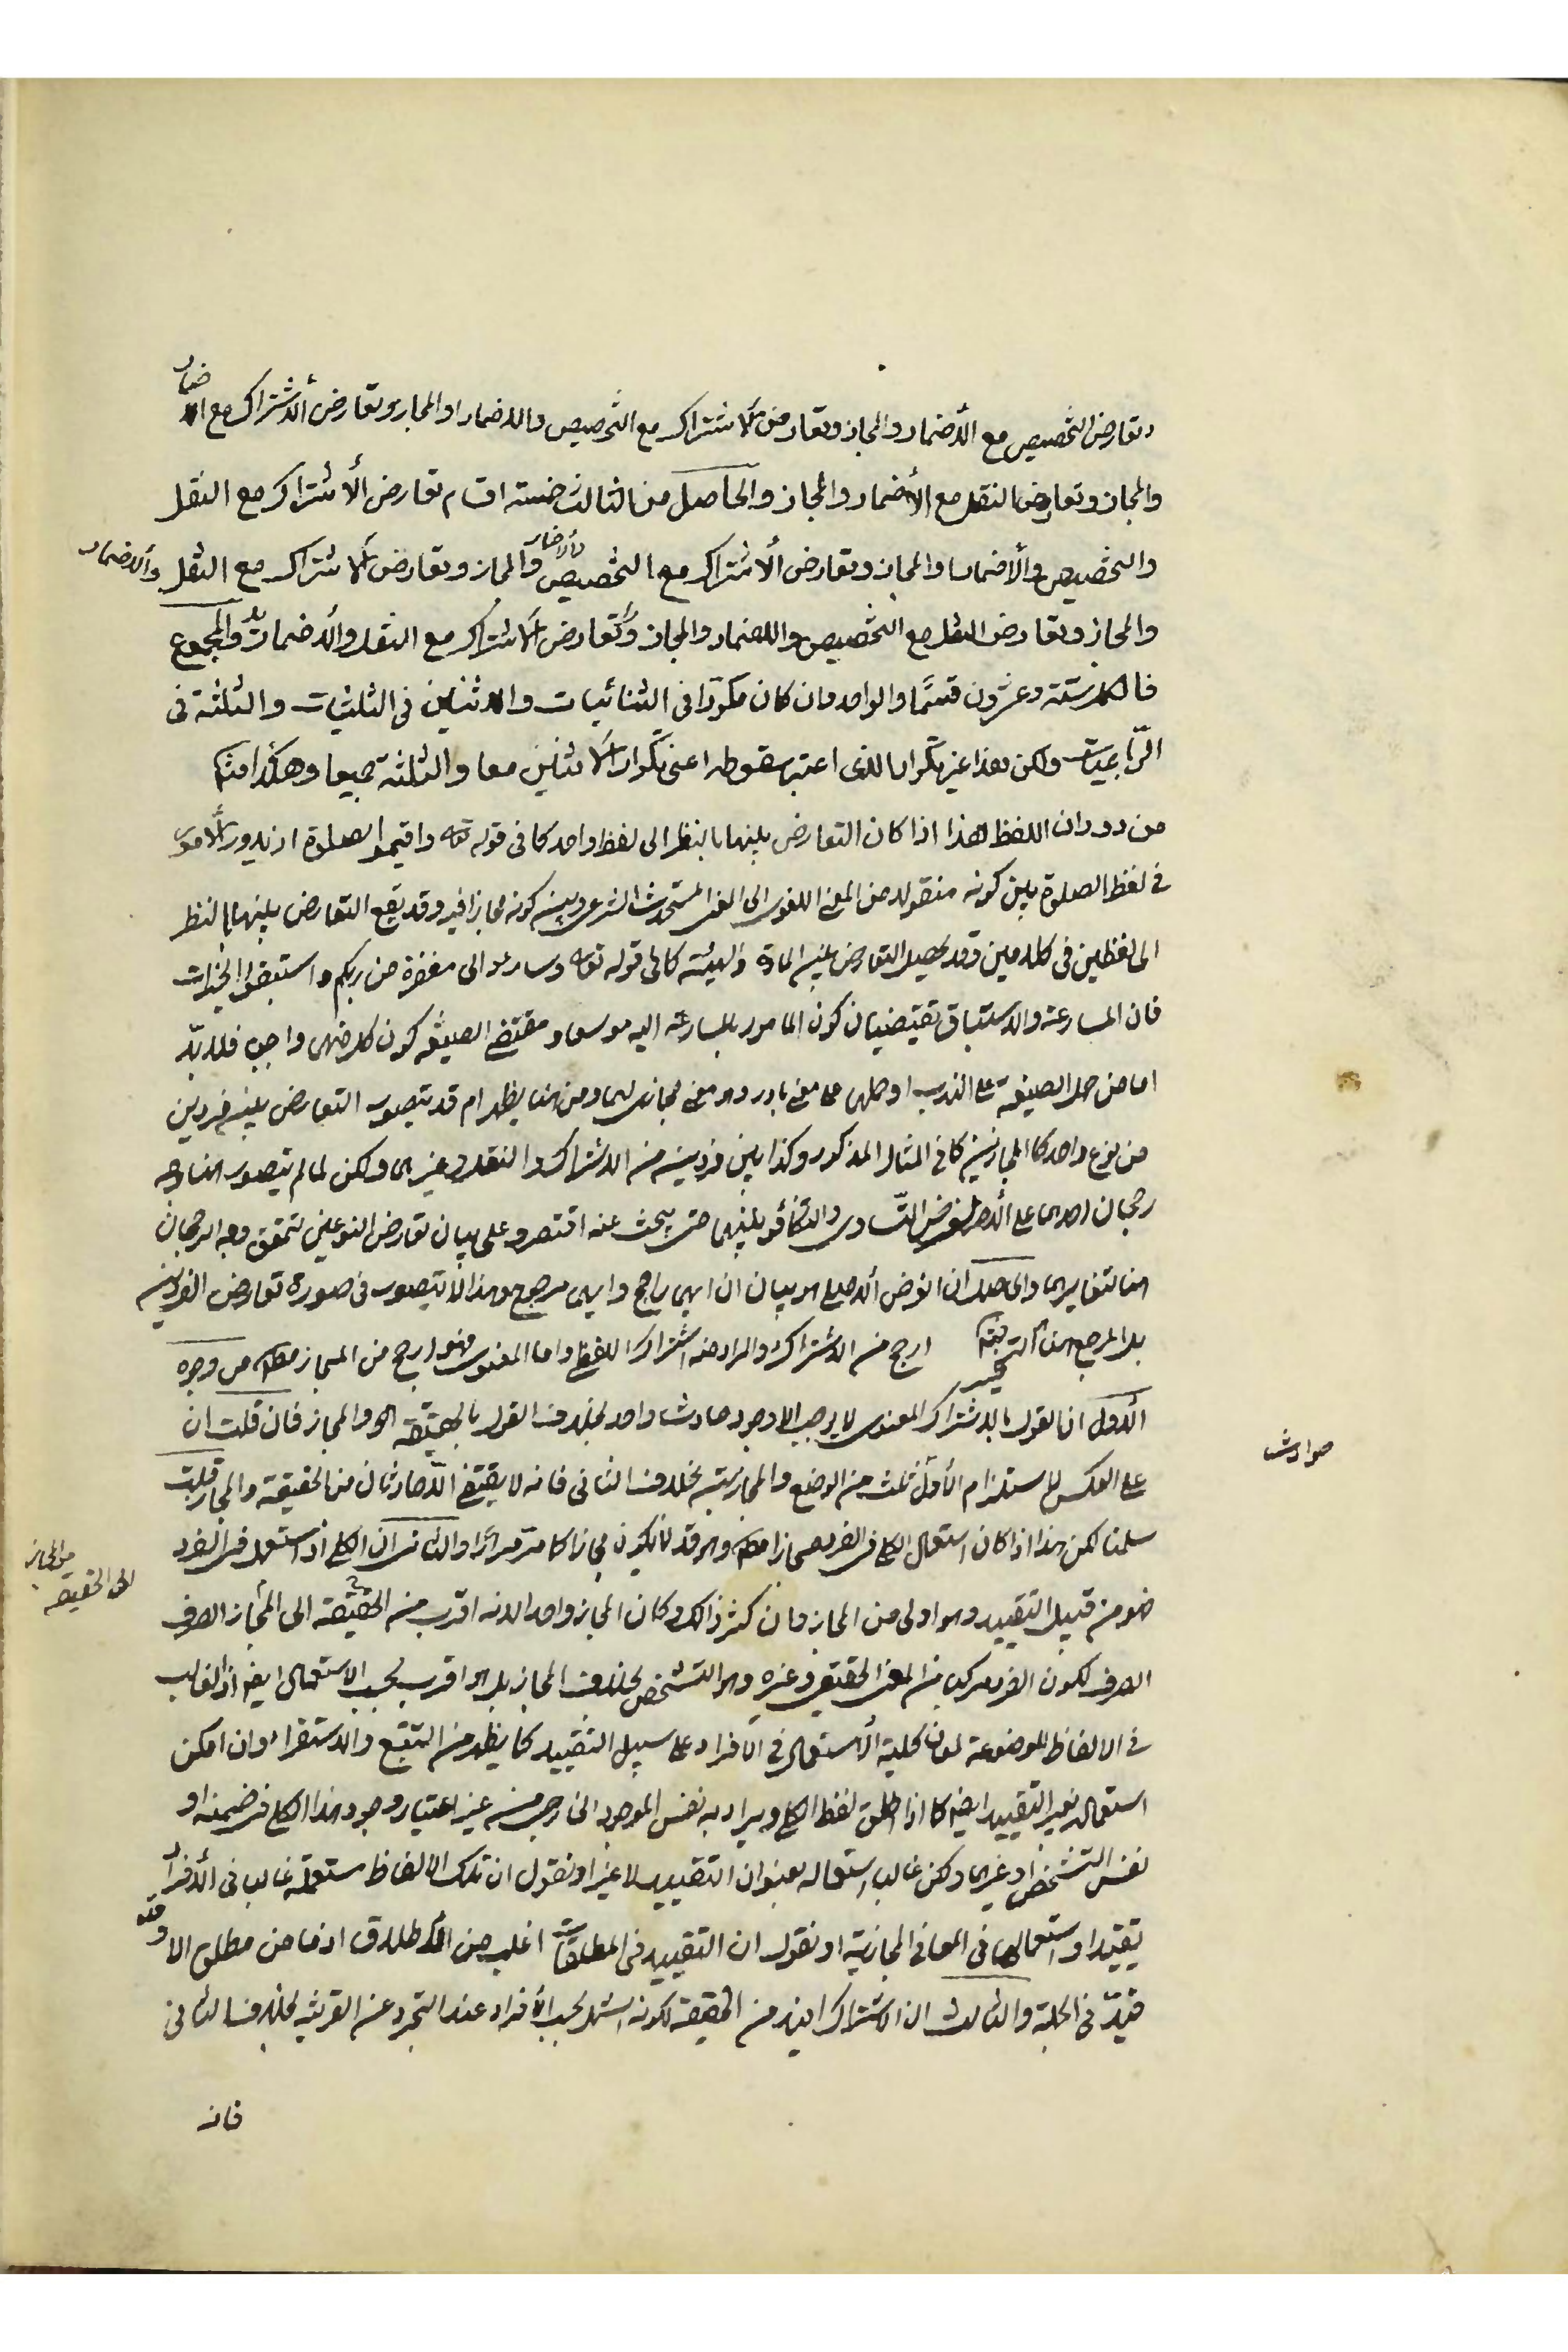 وتعارض التخصيص مع الأضمار والمجاز وتعارض الاشتراك مع التخصيص والاضمار او المجاز وتعارض الاشتراك مع الاضمار
والمجاز وتعارض النقل مع الأضمار والمجاز والحاصل من الثالث خمسة اقسام تعارض الأشتراك مع النقل
والتخصيص والأضمار او المجاز وتعارض الاشتراك مع التخصيص والاضمار والمجاز وتعارض الاشتراك مع النقل والاضمار
والمجاز وتعارض النقل مع التخصيص والاضمار والمجاز وتعارض الاشتراك مع النقل والاضمار والمجموع
فالكل ستة وعشرون قسمًا والواحد وان كان مكررًا في الثنائيات والاثنين في الثلثيات والثلثة في
الرّباعيات ولكن هذا غير تكرار الذي اعتبر سقوطه اعني تكرار الاثنين معا والثلثة جميعا وهكذا
من دوران اللفظ هذا اذا كان التعارض بينهما بالنظر الى لفظ واحد كما في قوله تعه واقيموا الصلوة اذ يدور الأمر
في لفظ الصلوة بين كونه منقولا من المعنى اللغوي الى المعنى المستحدث الشرعي وبين كونه مجازا فيه وقد يقع التعارض بينهما بالنظر
الى لفظين في كلامين وقد يحصل التعارض بين المادة والهيئة كما في قوله تعه وسارعوا الى مغفرة من ربكم واستبقوا الخيرات
فان المسارعة والاستباق يقتضيان كون المامور بالمسارعة اليه موسعا ومقتضى الصيغة كون كل منهما واجب فلا بدّ
اما من حمل الصيغة على الندب او حملها على معنى بادروا وهو معنى مجازي لهما ومن هنا يظهر ام قد يتصور التعارض بين فردين
من نوع واحد كالمجازين كما في المثال المذكور وكذا بين فردين من الاشتراك والنقل وغيرهما ولكن لما لم يتصور هنا وجه
رجحان احدهما على الاخر لفرض التساوي والتكافؤ بينهما حتى يبحث عنه اقتصروا على بيان تعارض النوعين لتحقق وجه الرجحان
هنا لتغايرهما والحاصل ان الغرض الاصلي هو بيان ان ايهما راجح وايهما مرجوح وهذا لا يتصور في صورة تعارض الفردين
بل المرجع هنا ارجح من الاشتراك والمراد منه اشتراك اللفظي واما المعنوي فهو ارجح من المجاز من وجوه
الأول ان القول بالاشتراك المعنوي لا يوجب الا وجود حادث واحد بخلاف القول بالحقيقة والمجاز فان قلت ان
على العكس لاستلزام الأول ثلث من الوضع والمجازية بخلاف الثاني فانه لا يقتضي الا حادثان من الحقيقة والمجاز قلت
حوادث
سلمنا لكن هذا اذا كان استعمال الكلي في الفرد مجازا وهو قد لا يكون مجازا كما مرّ مرارًا والثاني ان الكلي اذ استعمل في الفرد
فهو من قبيل التقييد وهو اولى من المجاز وان كثر ذالك وكان المجاز واحدا لانه اقرب من الحقيقة الى المجاز الصرف
من المجاز
الى الحقيقة
الصرف لكون الفرد مركب من المعنى الحقيقي وغيره وهو التشخص بخلاف المجاز بل هو اقرب بحسب الاستعمال ايضا اذ الغالب
في الالفاظ الموضوعة لمعان كلية الاستعمال في الافراد على سبيل التقييد كما يظهر من التتبع والاستقراء وان امكن
استعماله بغير التقييد ايضا كما اذا اطلق لفظ الكلي ويراد به نفس الموجود الخارجي من غير اعتبار وجود هذا الكلي في ضمنه او
نفس التشخص او غيرهما ولكن غالب استعماله بعنوان التقييد لا غير او نقول ان تلك الالفاظ مستعملة غالبا في الافراد
تقييدا واستعمالها في المعاني المجازية او نقول ان التقييد في المطلقات اغلب من الاطلاق اذ ما من مطلق الا وقد
قيّد في الجملة والثالث ان الاشتراك افيد من الحقيقة لكونه اشمل بحسب الأفراد عند التجرد عن القرينة بخلاف الثاني
فانه